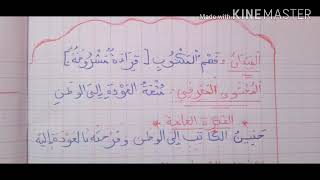 Made with KINEMASTER
الميدان: فهم المكتوب [قراءة مشروحة]
المحتوى المعرفي: متعة العودة إلى الوطن
الفكرة العامة
حنين الكاتب إلى الوطن وفرحته بالعودة إليه